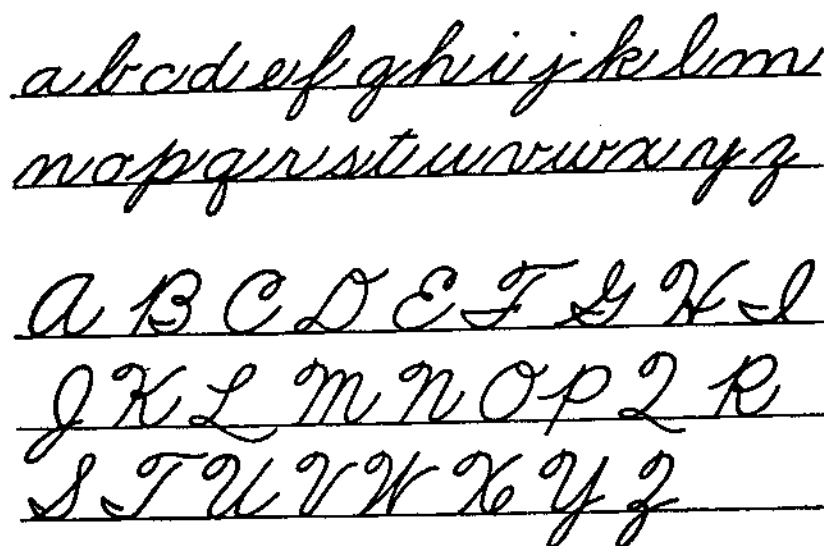 abcdefghijklm
nopqrstuvwxyz
A B C D E F G H I
J K L M N O P Q R
S T U V W X Y Z